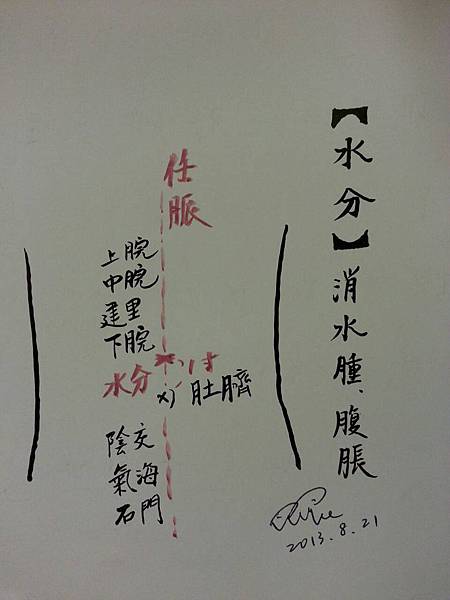 【水分】消水腫、腹脹
任脈
上脘
中脘
建里
下脘
水分
1寸
肚臍
陰交
氣海
石門
2013.8.21